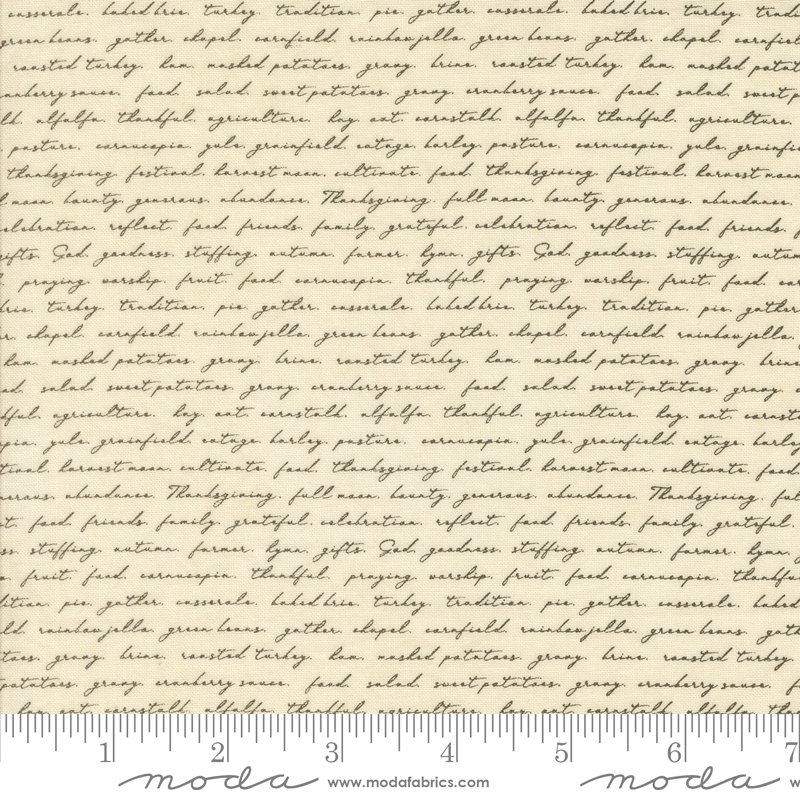 casserole. baked brie. turkey. tradition. pie. gather. casserole. baked brie. turkey.
green beans. gather. chapel. cornfield. rainbow jello. green beans. gather. chapel.
roasted turkey. ham. mashed potatoes. gravy. brine. roasted turkey. ham. mashed
cranberry sauce. food. salad. sweet potatoes. gravy. cranberry sauce. food. salad. sweet
alfalfa. thankful. agriculture. hay. oat. cornstalk. alfalfa. thankful. agriculture.
pasture. cornucopia. yule. grainfield. cotage. barley. pasture. cornucopia. yule.
thanksgiving. festival. harvest moon. cultivate. food. thanksgiving. festival. harvest moon
moon. bounty. generous. abundance. Thanksgiving. full moon. bounty. generous. abundance.
celebration. reflect. food. friends. family. grateful. celebration. reflect. food. friends.
gifts. God. goodness. stuffing. autumn. farmer. hymn. gifts. God. goodness. stuffing.
praying. worship. fruit. food. cornucopia. thankful. praying. worship. fruit. food.
brie. turkey. tradition. pie. gather. casserole. baked brie. turkey. tradition. pie. gather
chapel. cornfield. rainbow jello. green beans. gather. chapel. cornfield. rainbow jello.
ham. mashed potatoes. gravy. brine. roasted turkey. ham. mashed potatoes. gravy. brine
salad. sweet potatoes. gravy. cranberry sauce. food. salad. sweet potatoes. gravy.
agriculture. hay. oat. cornstalk. alfalfa. thankful. agriculture. hay. oat.
yule. grainfield. cotage. barley. pasture. cornucopia. yule. grainfield. cotage.
harvest moon. cultivate. food. thanksgiving. festival. harvest moon. cultivate. food.
abundance. Thanksgiving. full moon. bounty. generous. abundance. Thanksgiving.
food. friends. family. grateful. celebration. reflect. food. friends. family. grateful.
stuffing. autumn. farmer. hymn. gifts. God. goodness. stuffing. autumn. farmer. hymn.
fruit. food. cornucopia. thankful. praying. worship. fruit. food. cornucopia.
pie. gather. casserole. baked brie. turkey. tradition. pie. gather. casserole. baked
rainbow jello. green beans. gather. chapel. cornfield. rainbow jello. green beans.
gravy. brine. roasted turkey. ham. mashed potatoes. gravy. brine. roasted turkey.
potatoes. gravy. cranberry sauce. food. salad. sweet potatoes. gravy. cranberry sauce.
hay. oat. cornstalk. alfalfa. thankful. agriculture. hay. oat. cornstalk. alfalfa.
1 2 3 4 5 6 7
moda www.modafabrics.com moda